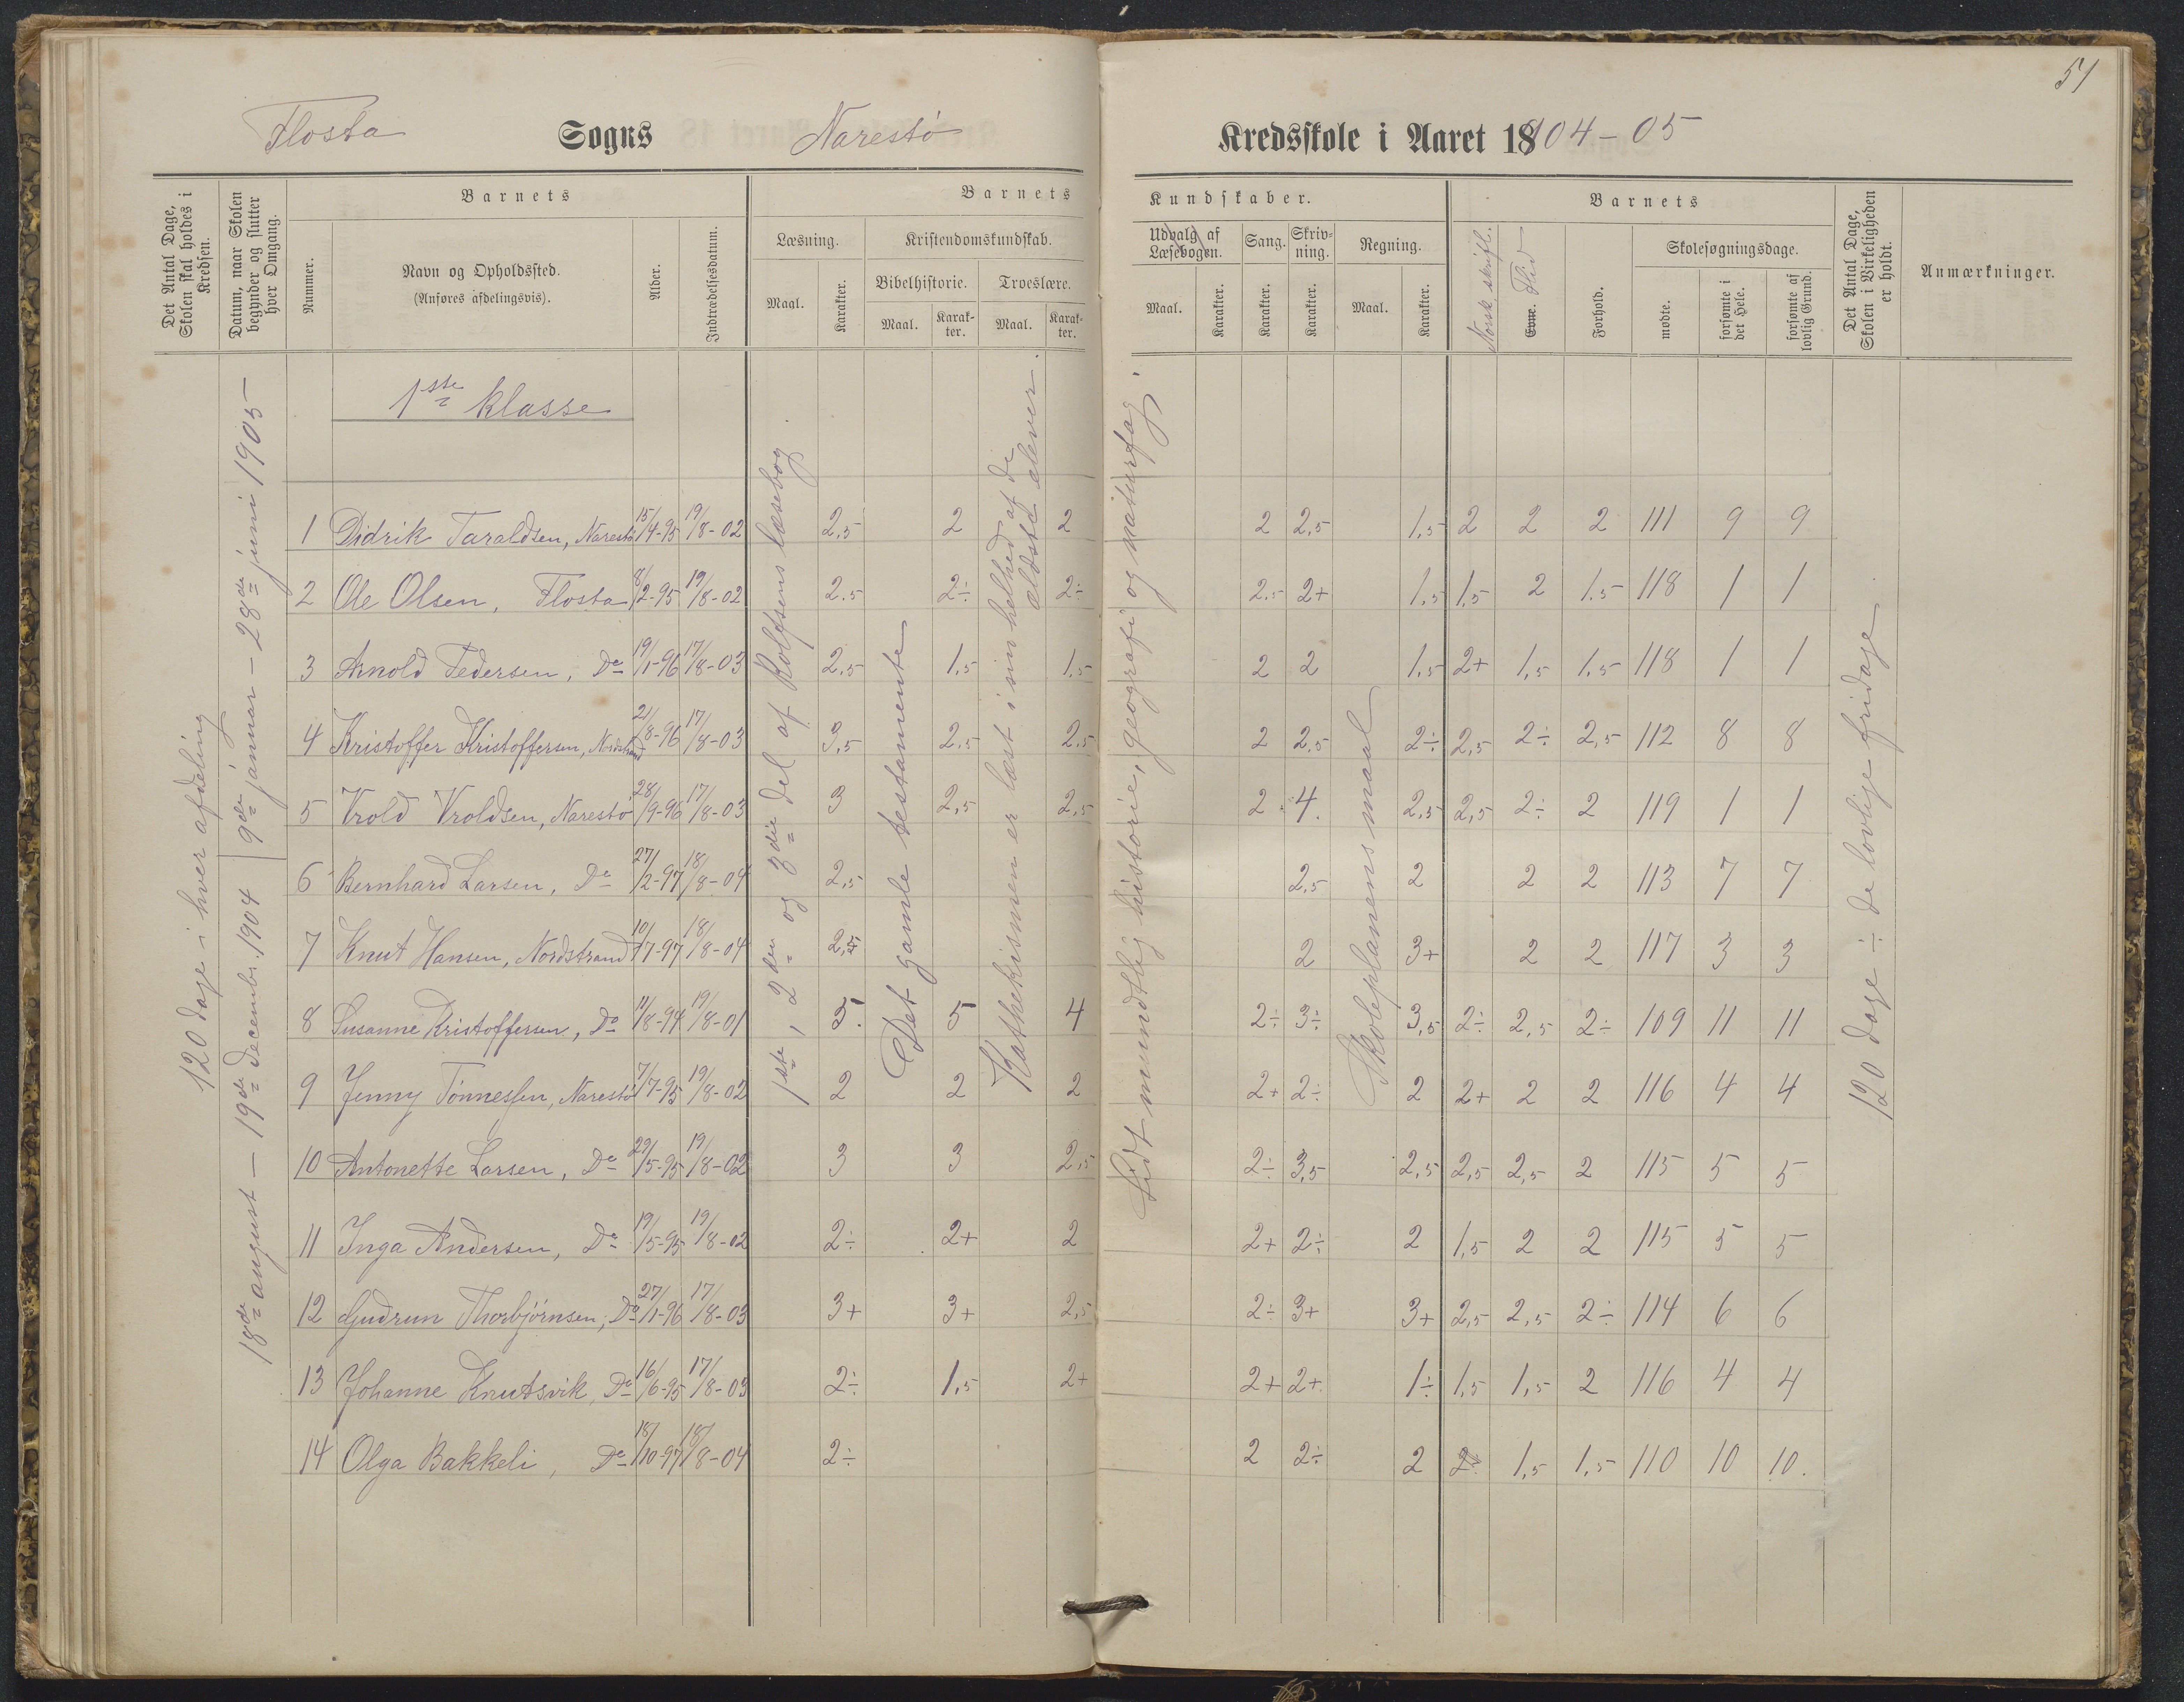 51
Flosta Sogns Narestø Kredsskole i Aaret 18904-05
Det Antal Dage, Skolen skal holdes i Kredsen.
Datum, naar Skolen begynder og slutter hver Omgang.
Barnets
Nummer.
Navn og Opholdssted.
(Anføres afdelingsvis).
Alder.
Indtrædelsesdatum.
Barnets Kundskaber.
Læsning.
Maal.
Karakter.
Kristendomskundskab.
Bibelhistorie.
Maal.
Karakter.
Troeslære.
Maal.
Karakter.
Udvalg af Læsebogen.
Maal.
Karakter.
Sang.
Karakter.
Skrivning.
Karakter.
Regning.
Maal.
Karakter.
Barnets
Norsk skriftl.
Evne. Flid
Forhold.
Skolesøgningsdage.
mødte.
forsømte i det Hele.
forsømte af lovlig Grund.
Det Antal Dage, Skolen i Virkeligheden er holdt.
Anmærkninger.
120 dage i hver afdeling
18de august – 19de decembr. 1904
9de januar – 28de juni 1905
1ste klasse
1ste, 2den og 3die del af Rolfsens læsebog.
Det gamle testamente
Kathekismen er læst i sin helhed af de ældste elever.
Lidt mundtlig historie, geografi og naturfag.
Skoleplanens maal
120 dage ÷ de lovlige fridage
1 Didrik Taraldsen, Narestø 15/4-95 19/8-02 2,5 2 2 2 2,5 1,5 2 2 2 111 9 9
2 Ole Olsen, Flosta 8/2-95 19/8-02 2.5 2÷ 2÷ 2,5 2+ 1,5 1,5 2 1.5 118 1 1
3 Arnold Pedersen, Do 19/1-96 17/8-03 2,5 1,5 1,5 2 2 1,5 2+ 1,5 1,5 118 1 1
4 Kristoffer Kristoffersen, Nordstrand 21/8-96 17/8-03 3,5 2.5 2.5 2 2.5 2÷ 2,5 2÷ 2,5 112 8 8
5 Vrold Vroldsen, Narestø 28/9-96 17/8-03 3 2,5 2,5 2 4. 2,5 2,5 2÷ 2 119 1 1
6 Bernhard Larsen, Do 27/2-97 18/8-04 2,5 2,5 2 2 2 113 7 7
7 Knut Hansen, Nordstrand 10/7-97 18/8-04 2,5 2 3+ 2 2 117 3 3
8 Susanne Kristoffersen, Do 11/8-94 19/8-01 5 4 2÷ 3÷ 3,5 2÷ 2,5 2÷ 109 11 11
9 Jenny Tønnessen, Narestø 7/7-95 19/8-02 2 2 2 2+ 2÷ 2 2+ 2 2 116 4 4
10 Antonette Larsen, Do 29/5-95 19/8-02 3 3 2,5 2÷ 3,5 2,5 2,5 2,5 2 115 5 5
11 Inga Andersen, Do 19/5-95 19/8-02 2÷ 2+ 2 2+ 2÷ 2 1,5 2 2 115 5 5
12 Gudrun Thorbjørnsen, Do 27/1-96 17/8-03 3+ 3+ 2,5 2÷ 3+ 3+ 2,5 2,5 2÷ 114 6 6
13 Johanne Knutsvik, Do 16/6-95 17/8-03 2÷ 1,5 2+ 2+ 2+ 1÷ 1,5 1,5 2 116 4 4
14 Olga Bakkeli, Do 18/10-97 18/8-04 2÷ 2 2÷ 2 1,5 1,5 110 10 10.